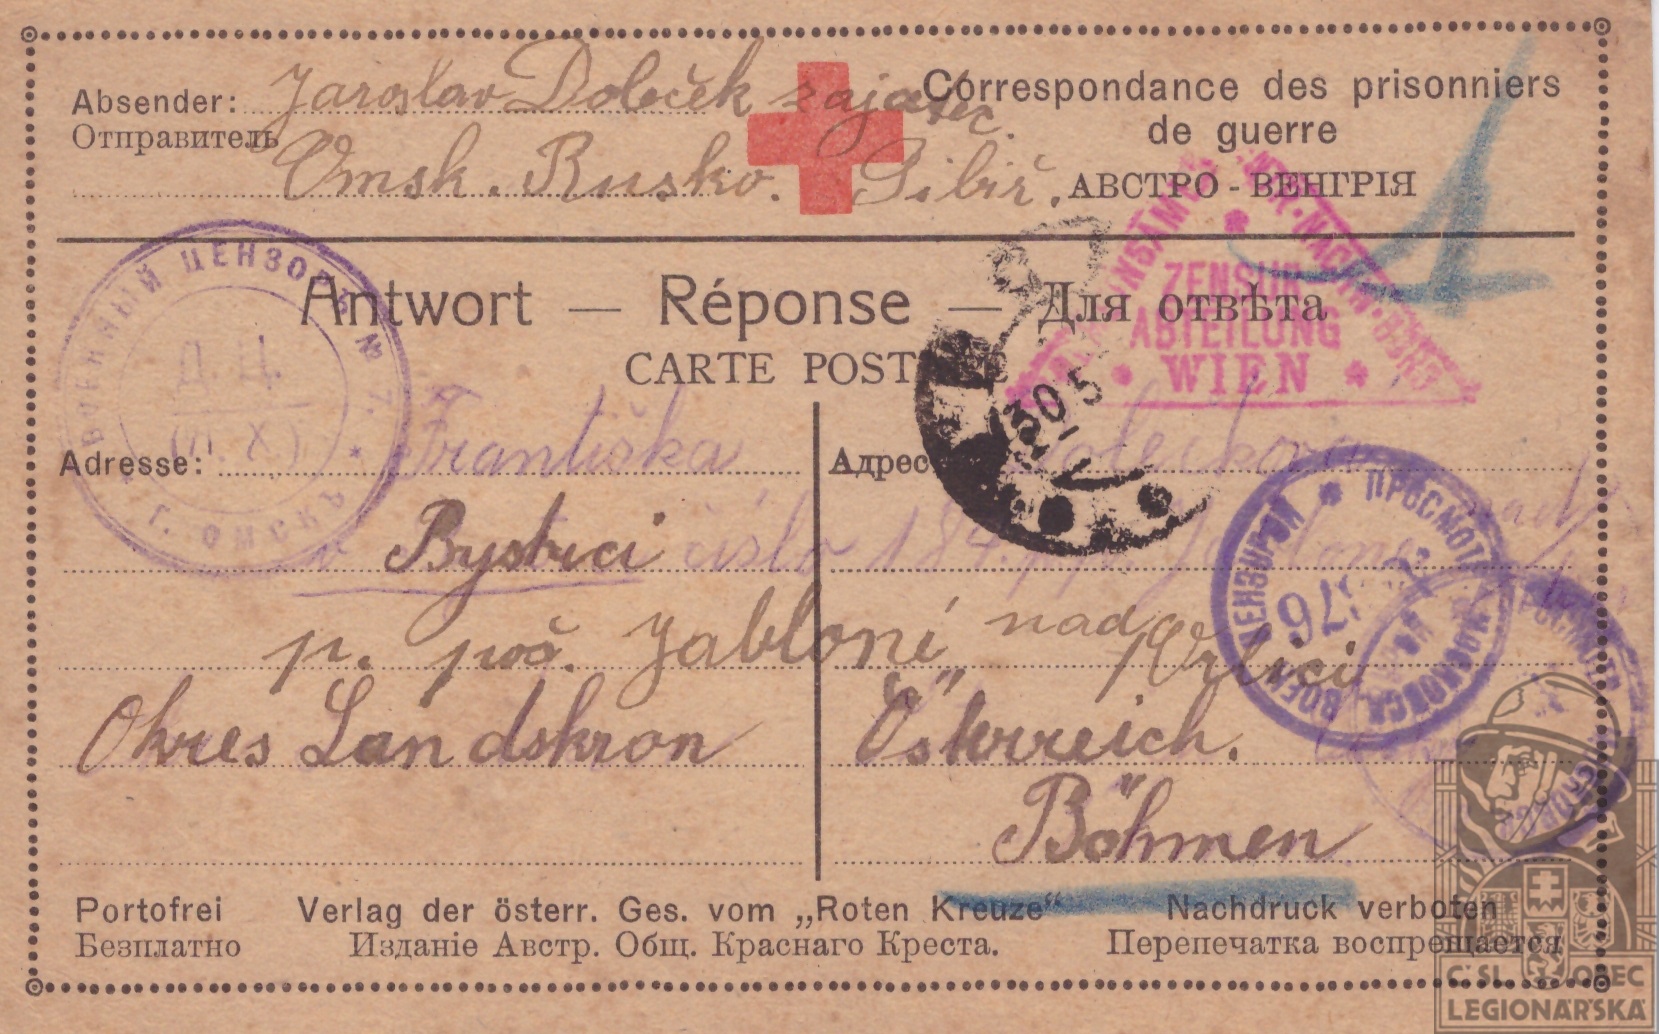 Absender: Jaroslav Doleček zajatec.
Отправитель
Omsk. Rusko. Sibiř.
Correspondance des prisonniers
de guerre
АВСТРО - ВЕНГРІЯ
ВОЕННЫЙ ЦЕНЗОРЪ № 7.
Д. Ц.
Г. ОМСКЪ
ZENSUR
ABTEILUNG
WIEN
Antwort — Réponse — Для отвѣта
CARTE POSTALE
30 5
Adresse: Františka
Адрес
v Bystrici číslo 184. p.p.
p. poš. Jabloni nad Orlici
Okres Landskron Österreich.
Böhmen
ПРОСМОТР МОСКОВСК. ВОЕН ЦЕНЗУРОЙ
Portofrei Verlag der österr. Ges. vom „Roten Kreuze“ Nachdruck verboten
Безплатно Изданіе Австр. Общ. Краснаго Креста. Перепечатка воспрещается
Č SL OBEC
LEGIONÁŘSKÁ